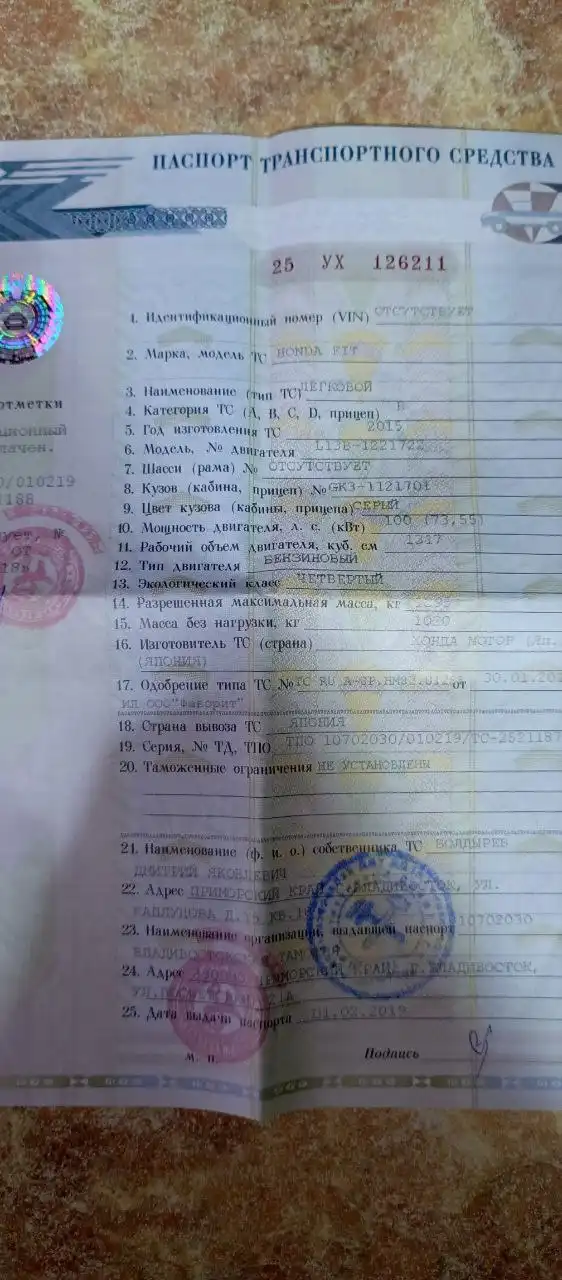 ПАСПОРТ ТРАНСПОРТНОГО СРЕДСТВА
25 УХ 126211
1. Идентификационный номер (VIN) ОТСУТСТВУЕТ
2. Марка, модель ТС HONDA FIT
3. Наименование (тип ТС) ЛЕГКОВОЙ
4. Категория ТС (A, B, C, D, прицеп) B
отметки
5. Год изготовления ТС 2015
6. Модель, № двигателя L13B-1221722
7. Шасси (рама) № ОТСУТСТВУЕТ
8. Кузов (кабина, прицеп) № GK3-1121701
9. Цвет кузова (кабины, прицепа) СЕРЫЙ
10. Мощность двигателя, л. с. (кВт) 100 (73,55)
11. Рабочий объем двигателя, куб. см 1317
12. Тип двигателя БЕНЗИНОВЫЙ
13. Экологический класс ЧЕТВЕРТЫЙ
14. Разрешенная максимальная масса, кг
15. Масса без нагрузки, кг
16. Изготовитель ТС (страна) ХОНДА МОТОР
(ЯПОНИЯ)
17. Одобрение типа ТС № от 30.01.20
ИП ООО"Фаворит"
18. Страна вывоза ТС ЯПОНИЯ
19. Серия, № ТД, ТПО ТПО 10702030/010219/ТС-2521187
20. Таможенные ограничения НЕ УСТАНОВЛЕНЫ
21. Наименование (ф. и. о.) собственника ТС БОЛДЫРЕВ
ДМИТРИЙ ЯКОВЛЕВИЧ
22. Адрес ПРИМОРСКИЙ КРАЙ Г.ВЛАДИВОСТОК, УЛ.
КАПЛУНОВА
23. Наименование организации, выдавшей паспорт 10702030
24. Адрес ПРИМОРСКИЙ КРАЙ, Г.ВЛАДИВОСТОК,
25. Дата выдачи паспорта 01.02.2019
М. П. Подпись